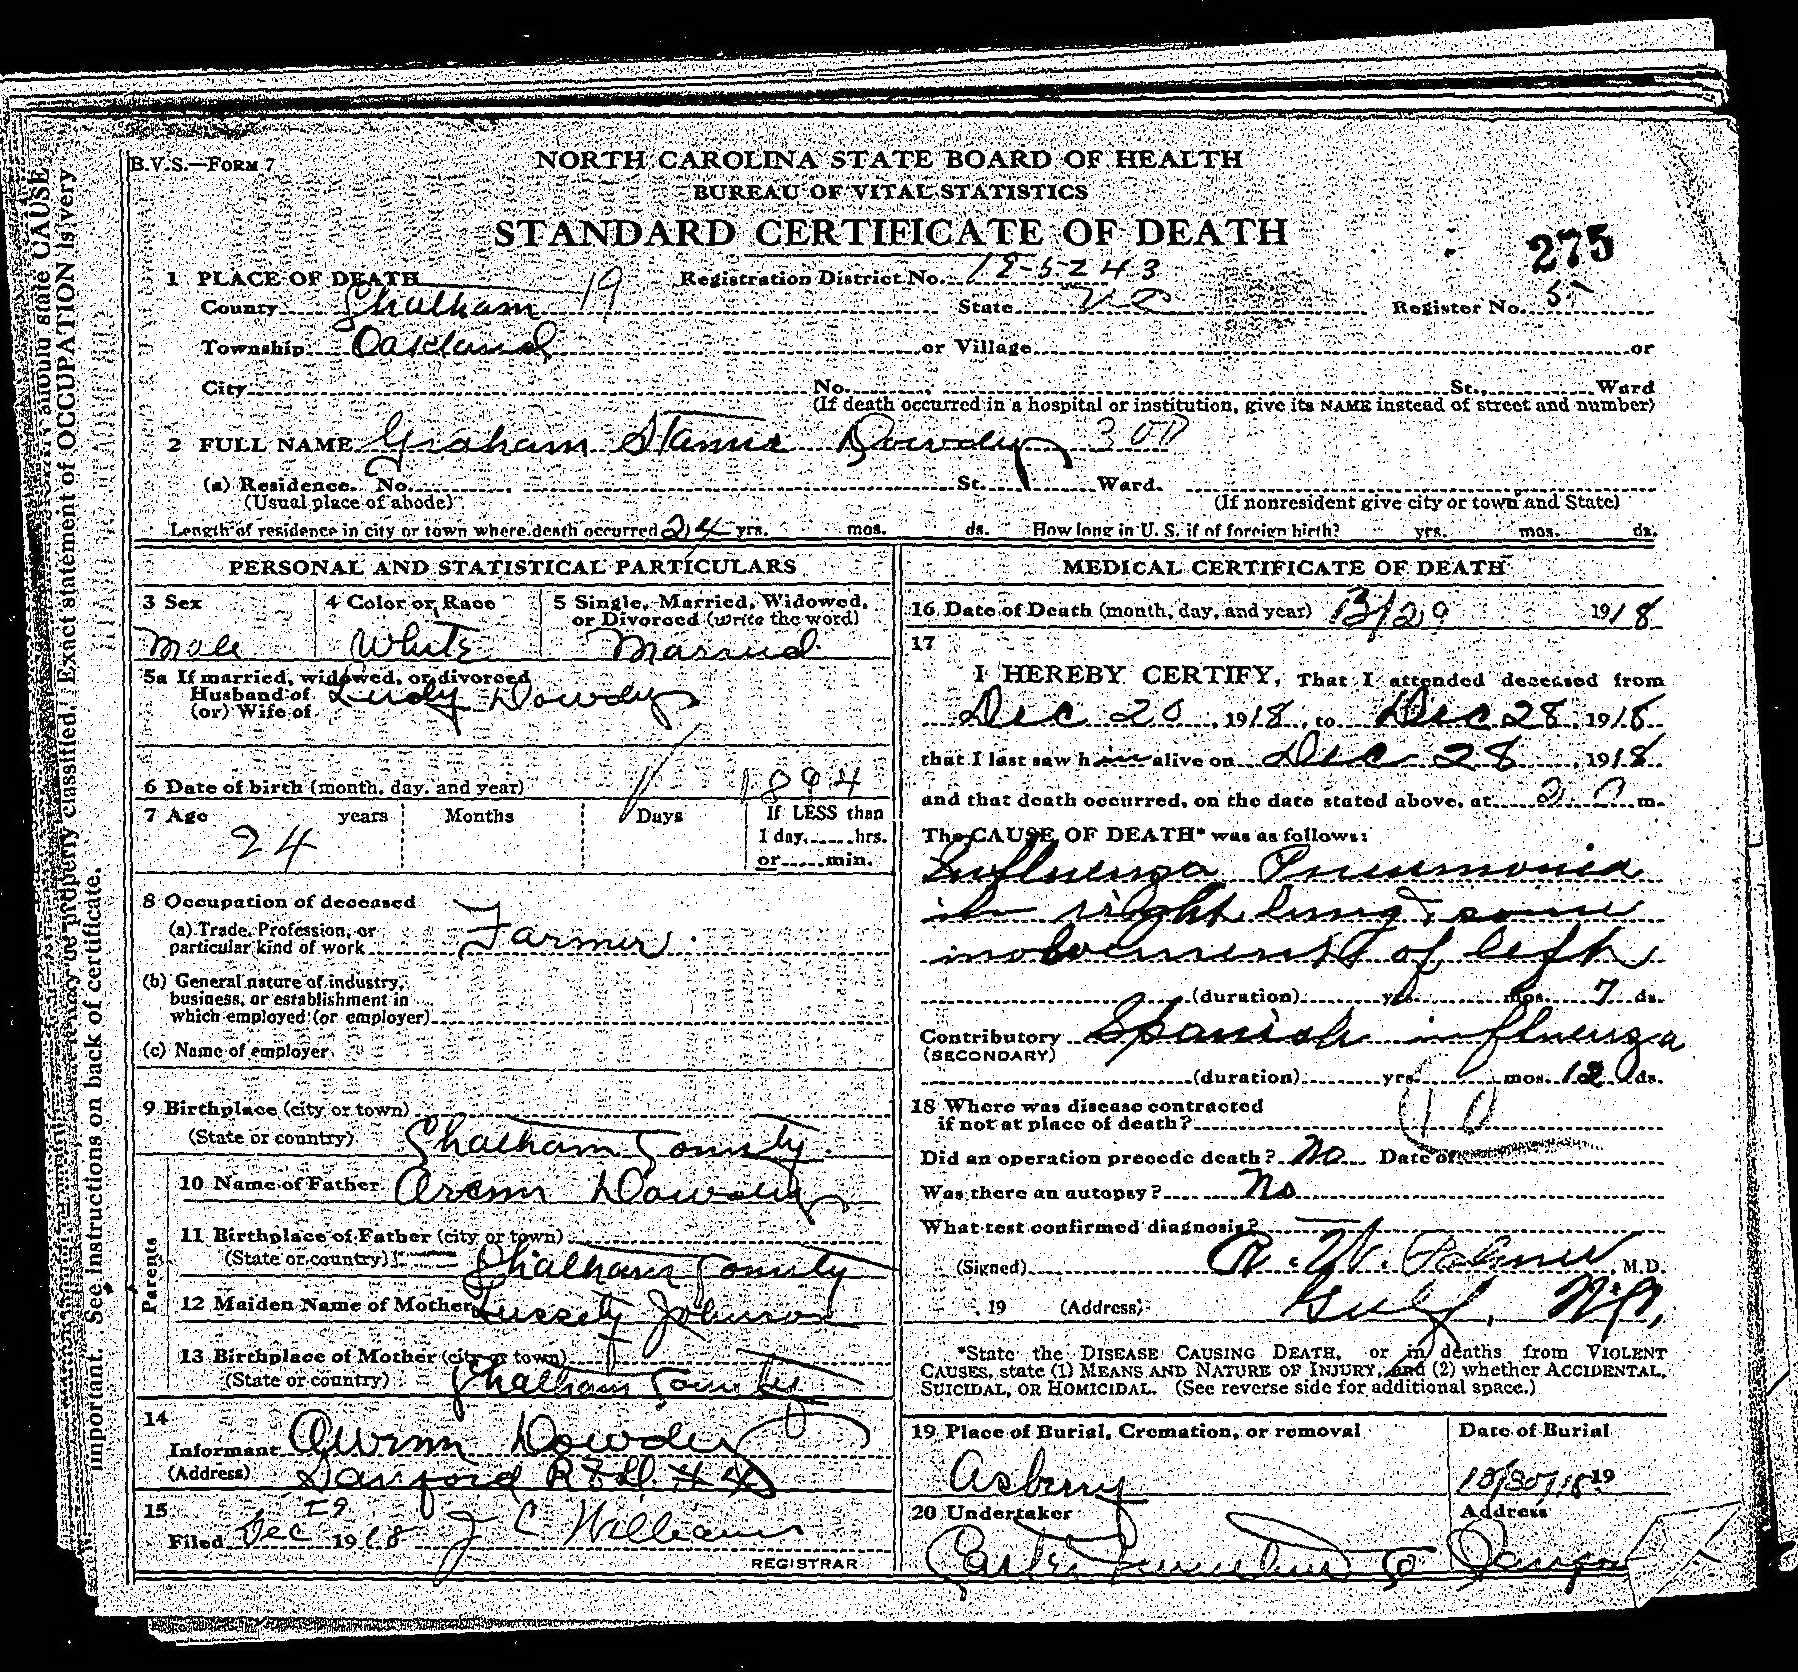 B.V.S.—FORM 7
NORTH CAROLINA STATE BOARD OF HEALTH
BUREAU OF VITAL STATISTICS
STANDARD CERTIFICATE OF DEATH
275
1 PLACE OF DEATH 19 Registration District No. 18-5243
County Chatham State NC Register No. 5
Township Oakland or Village or
City No. St., Ward
(If death occurred in a hospital or institution, give its NAME instead of street and number)
2 FULL NAME Graham Dowdy 300
(a) Residence. No. St. Ward.
(Usual place of abode) (If nonresident give city or town and State)
Length of residence in city or town where death occurred 24 yrs. mos. ds. How long in U. S. if of foreign birth? yrs. mos. ds.
PERSONAL AND STATISTICAL PARTICULARS
3 Sex 4 Color or Race 5 Single, Married, Widowed,
or Divorced (write the word)
Male White Married
5a If married, widowed, or divorced
Husband of Dowdy
(or) Wife of
6 Date of birth (month, day, and year) 1894
7 Age years Months Days If LESS than
24 1 day, hrs.
or min.
8 Occupation of deceased
(a) Trade, Profession, or
particular kind of work Farmer
(b) General nature of industry,
business, or establishment in
which employed (or employer)
(c) Name of employer
9 Birthplace (city or town)
(State or country) Chatham County
Parents
10 Name of Father Dowdy
11 Birthplace of Father (city or town)
(State or country) Chatham County
12 Maiden Name of Mother Johnson
13 Birthplace of Mother (city or town)
(State or country) Chatham County
14
Informant Dowdy
(Address) Sanford RFD #4
15
Filed Dec 29 1918 J C Williams
REGISTRAR
MEDICAL CERTIFICATE OF DEATH
16 Date of Death (month, day, and year) 12/29 1918
17
I HEREBY CERTIFY, That I attended deceased from
Dec 20, 1918, to Dec 28, 1918
that I last saw him alive on Dec 28, 1918
and that death occurred, on the date stated above, at m.
The CAUSE OF DEATH* was as follows:
Influenza Pneumonia
in right lung & some
involvement of left
(duration) yrs. mos. 7 ds.
Contributory Spanish influenza
(SECONDARY)
(duration) yrs. mos. 12 ds.
18 Where was disease contracted
if not at place of death? 10
Did an operation precede death? No Date of
Was there an autopsy? No
What test confirmed diagnosis?
(Signed) R. W. Palmer, M.D.
, 19 (Address) Gulf, N.C,
*State the DISEASE CAUSING DEATH, or in deaths from VIOLENT
CAUSES, state (1) MEANS AND NATURE OF INJURY, and (2) whether ACCIDENTAL,
SUICIDAL, OR HOMICIDAL. (See reverse side for additional space.)
19 Place of Burial, Cremation, or removal Date of Burial
Asbury 12/30/18 19
20 Undertaker Address
Furniture Co
should state CAUSE
Exact statement of OCCUPATION is very
may be properly classified.
important. See instructions on back of certificate.